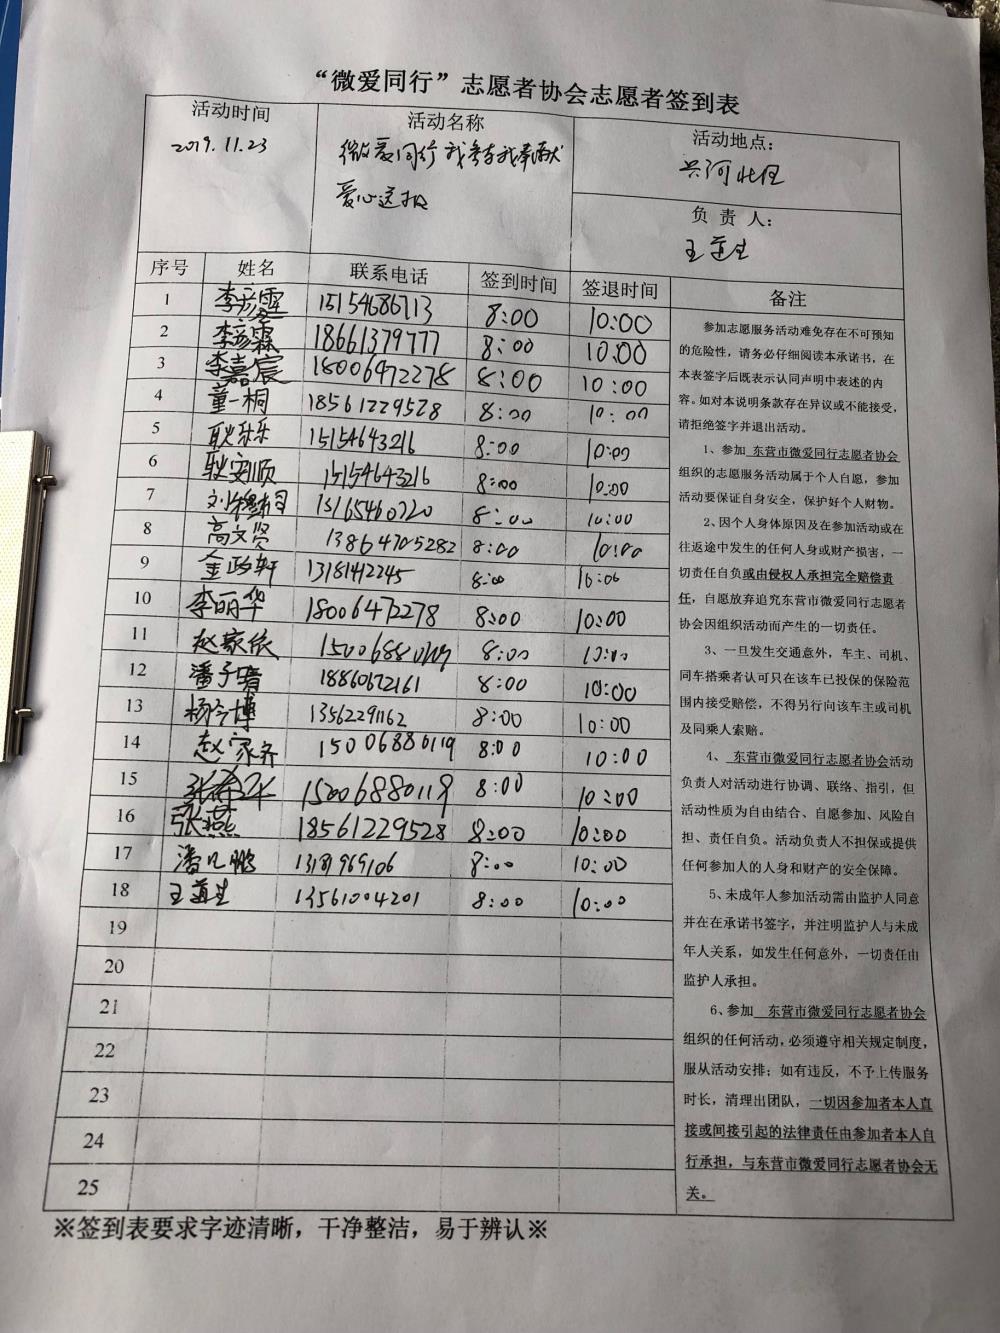 “微爱同行”志愿者协会志愿者签到表
活动时间
2019.11.23
活动名称
微爱同行 我参与我奉献
爱心送报
活动地点：
兴河北区
负 责 人：
王道生
序号 姓名 联系电话 签到时间 签退时间 备注
1 李彦 15154686713 8:00 10:00
2 李彦霖 18661379777 8:00 10:00
3 李嘉宸 18006472278 8:00 10:00
4 童一桐 18561229528 8:00 10:00
5 耿乐乐 15154643216 8:00 10:00
6 耿安顺 15154643216 8:00 10:00
7 刘穆桐 15165460720 8:00 10:00
8 高文贤 13864705282 8:00 10:00
9 金政轩 13181412245 8:00 10:00
10 李丽华 18006472278 8:00 10:00
11 赵家依 8:00 10:00
12 潘子晴 18860672161 8:00 10:00
13 杨今博 13562291162 8:00 10:00
14 赵家齐 15006880119 8:00 10:00
15 15006880119 8:00 10:00
16 张燕 18561229528 8:00 10:00
17 潘凡鹏 13181969106 8:00 10:00
18 王道生 13561004201 8:00 10:00
19
20
21
22
23
24
25
参加志愿服务活动难免存在不可预知
的危险性，请务必仔细阅读本承诺书，在
本表签字后既表示认同声明中表述的内
容。如对本说明条款存在异议或不能接受，
请拒绝签字并退出活动。
1、参加 东营市微爱同行志愿者协会
组织的志愿服务活动属于个人自愿，参加
活动要保证自身安全，保护好个人财物。
2、因个人身体原因及在参加活动或在
往返途中发生的任何人身或财产损害，一
切责任自负或由侵权人承担完全赔偿责
任，自愿放弃追究东营市微爱同行志愿者
协会因组织活动而产生的一切责任。
3、一旦发生交通意外，车主、司机、
同车搭乘者认可只在该车已投保的保险范
围内接受赔偿，不得另行向该车主或司机
及同乘人索赔。
4、 东营市微爱同行志愿者协会活动
负责人对活动进行协调、联络、指引，但
活动性质为自由结合、自愿参加、风险自
担、责任自负。活动负责人不担保或提供
任何参加人的人身和财产的安全保障。
5、未成年人参加活动需由监护人同意
并在在承诺书签字，并注明监护人与未成
年人关系，如发生任何意外，一切责任由
监护人承担。
6、参加 东营市微爱同行志愿者协会
组织的任何活动，必须遵守相关规定制度，
服从活动安排；如有违反，不予上传服务
时长，清理出团队，一切因参加者本人直
接或间接引起的法律责任由参加者本人自
行承担，与东营市微爱同行志愿者协会无
关。
※签到表要求字迹清晰，干净整洁，易于辨认※